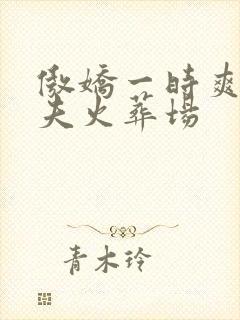 傲嬌一時爽
夫火葬場
青木玲